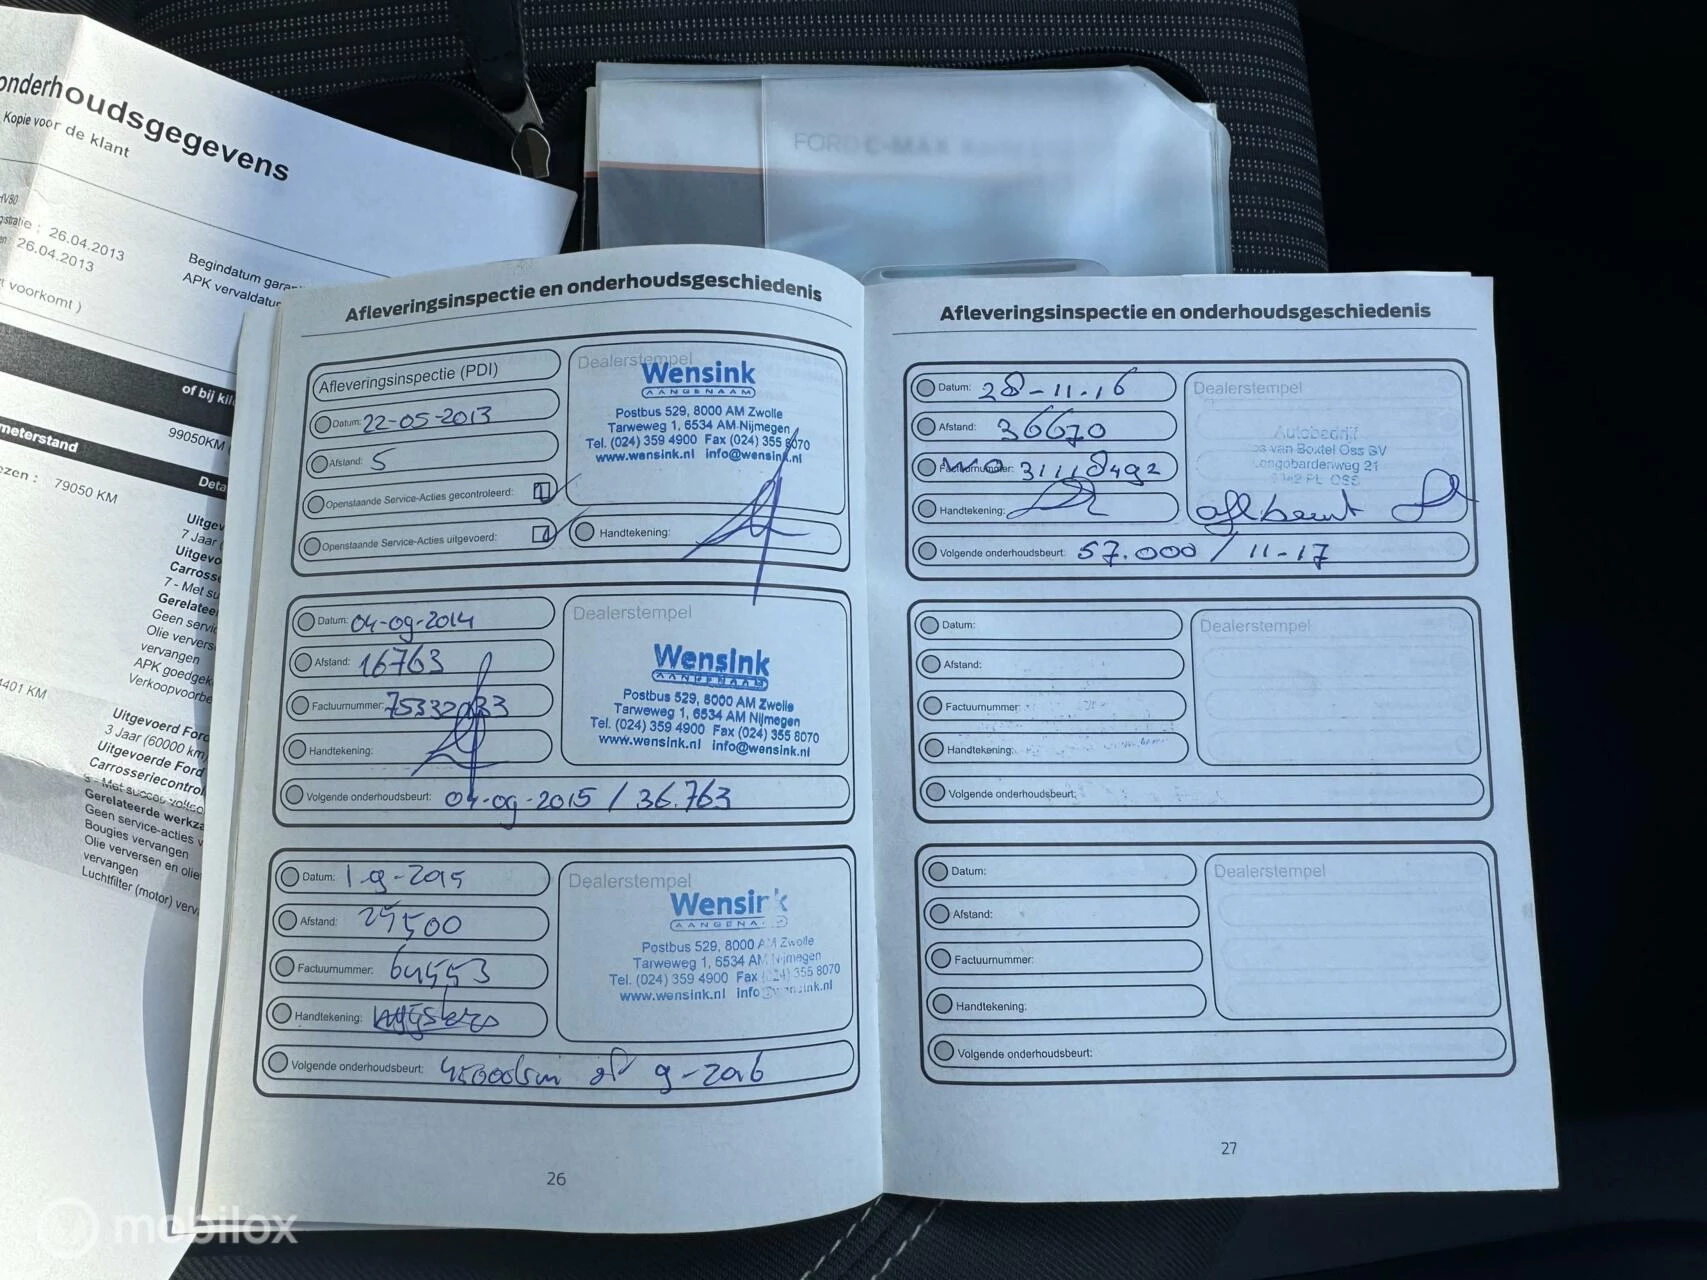 onderhoudsgegevens
Kopie voor de klant
HV80
26.04.2013
26.04.2013
Begindatum
APK
voorkomt )
of bij
99050KM
meterstand
79050 KM
7 Jaar
7 - Met
Geen
Olie
vervangen
APK
4401 KM
Uitgevoerd Ford
3 Jaar (60000 km
Uitgevoerde Ford
- Met succes
Gerelateerde
Geen service-acties
Bougies vervangen
Olie verversen en
vervangen
Luchtfilter (motor)
FORD C-MAX
Afleveringsinspectie en onderhoudsgeschiedenis
Afleveringsinspectie (PDI)
Datum: 22-05-2013
Afstand: 5
Openstaande Service-Acties gecontroleerd:
Openstaande Service-Acties uitgevoerd:
Dealerstempel
Wensink
AANGENAAM
Postbus 529, 8000 AM Zwolle
Tarweweg 1, 6534 AM Nijmegen
Tel. (024) 359 4900 Fax (024) 355 8070
www.wensink.nl info@wensink.nl
Handtekening:
Datum: 04-09-2014
Afstand: 16763
Factuurnummer:
Handtekening:
Dealerstempel
Wensink
AANGENAAM
Postbus 529, 8000 AM Zwolle
Tarweweg 1, 6534 AM Nijmegen
Tel. (024) 359 4900 Fax (024) 355 8070
www.wensink.nl info@wensink.nl
Volgende onderhoudsbeurt: 04-09-2015 / 36.763
Datum: 1-9-2015
Afstand:
Factuurnummer: 64553
Handtekening:
Dealerstempel
Wensink
AANGENA
Postbus 529, 8000 AM Zwolle
Tarweweg 1, 6534 AM Nijmegen
Tel. (024) 359 4900 Fax (024) 355 8070
www.wensink.nl
Volgende onderhoudsbeurt: 45000km of 9-2016
26
Afleveringsinspectie en onderhoudsgeschiedenis
Datum: 28-11-16
Afstand: 36670
Factuurnummer: 31118492
Handtekening:
Dealerstempel
Autobedrijf
van Boxtel Oss BV
Longobardenweg 21
OSS
Volgende onderhoudsbeurt: 57.000 / 11-17
Datum:
Afstand:
Factuurnummer
Handtekening:
Volgende onderhoudsbeurt:
Dealerstempel
Datum:
Afstand:
Factuurnummer:
Handtekening:
Volgende onderhoudsbeurt:
Dealerstempel
27
mobilox